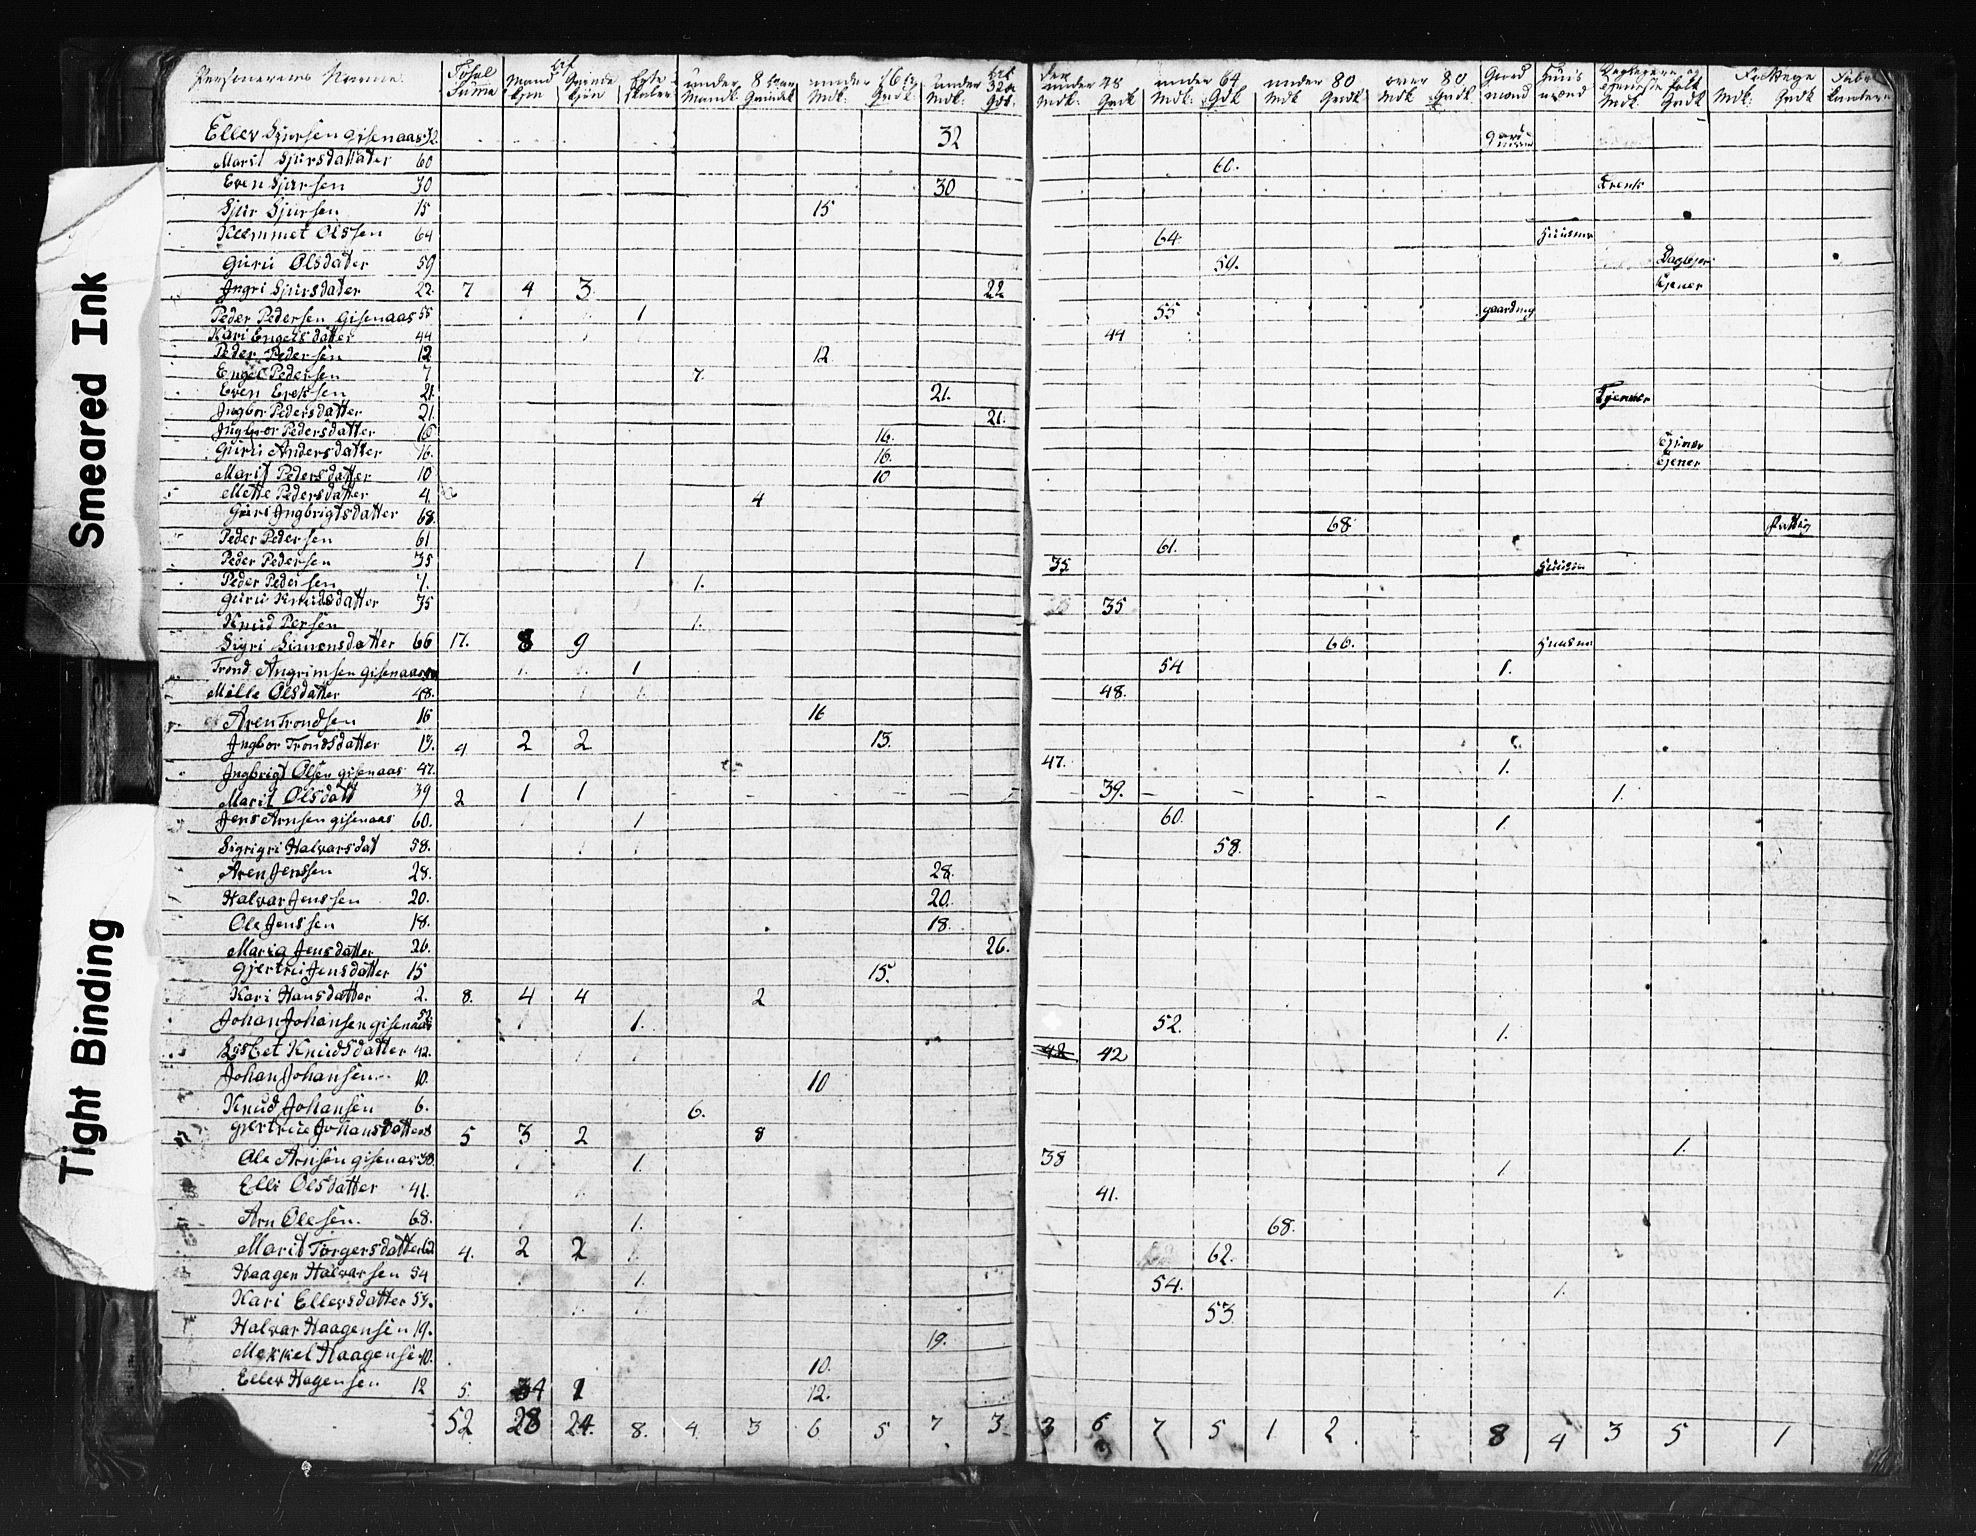 Smeared Ink
Tight Binding
Personernes Navne Total Summe Mand Kjøn af Qvinde Kjøn Egte skaber under 8 Mandk Qvindek under 16 Mdk: Qvdk: under 32 Mdk: Qdk: under 48 Mdk: Qvdk under 64 Mdk: Qdk under 80 Mdk Qvdk over 80 Mdk Qvdk Gaard mænd Huus mænd Mdk Qvdk Fattige Mdk: Qvdk
Ellev Sjursen Gisenaas 32 32
Marit Sjursdatter 60 60.
Even Sjursen 30 30
Sjur Sjursen 15 15
Klemmet Olssen 64 64 Huusm
Guru Olsdater 59 59.
Ingri Sjursdater 22. 7 4 3 22 Tjener
Peder Pedersen Gisenaas 55 1 55 gaardm
Kari Engelsdatter 44 44
Peder Pedersen 12 12
Engel Pedersen 7 7.
Even Evensen 21. 21. Tjener
Ingbor Pedersdatter 21. 21.
Ingbor Pedersdatter 16 16. Tjener
Guru Andersdatter 16. 16. Tjener
Marit Pedersdatter 10 10
Mette Pedersdatter 4. 4
Guri Ingbrigtsdatter 68. 68. fattig
Peder Pedersen 61 61.
Peder Pedersen 35 1 35 Huusm
Peder Pedersen 7. 1.
Guru Knudsdatter 35 35
Knud Persen 1.
Sigri Simonsdatter 66 17. 8 9 66. Huusm
Trond Angrimsen Gisenaas 54 1 54 1.
Mille Olsdatter 48. 48.
Aren Trondsen 16 16
Ingbor Trondsdatter 13. 4 2 2 13.
Ingbrigt Olsen Gisenaas 47. 47. 1.
Marit Olsdatt 39 2 1 1 39. 1.
Jens Arnsen Gisenaas 60. 1 60. 1.
Sigrigri Halvarsdat 58. 58.
Aren Jenssen 28. 28.
Halvar Jenssen 20. 20.
Ole Jenssen 18. 18.
Maria Jensdatter 26. 26.
Gjertru Jensdatter 15 15.
Kari Hansdatter 2. 8. 4 4 2
Johan Johansen Gisenaas 52. 1. 52. 1.
Lisbet Knudsdatter 42. 42 42
Johan Johansen 10. 10
Knud Johansen 6. 6.
Gjertrue Johansdatter 8 5 3 2 8 1.
Ole Arnsen Gisenaas 38. 1. 38 1
Elli Olsdatter 41. 41.
Arn Olesen. 68. 1. 68.
Marit Torgersdatter 62 4. 2 2 62.
Haagen Halvarsen 54 1. 54. 1.
Kari Ellevsdatter 53. 53.
Halvar Haagensen 19. 19.
Mekkel Haagense 10. 10.
Ellev Hagensen 12 5. 4 1 12.
52 28 24. 8. 4 3 6 5 7 3 3 6 7 5 1 2 8 4 3 5 1